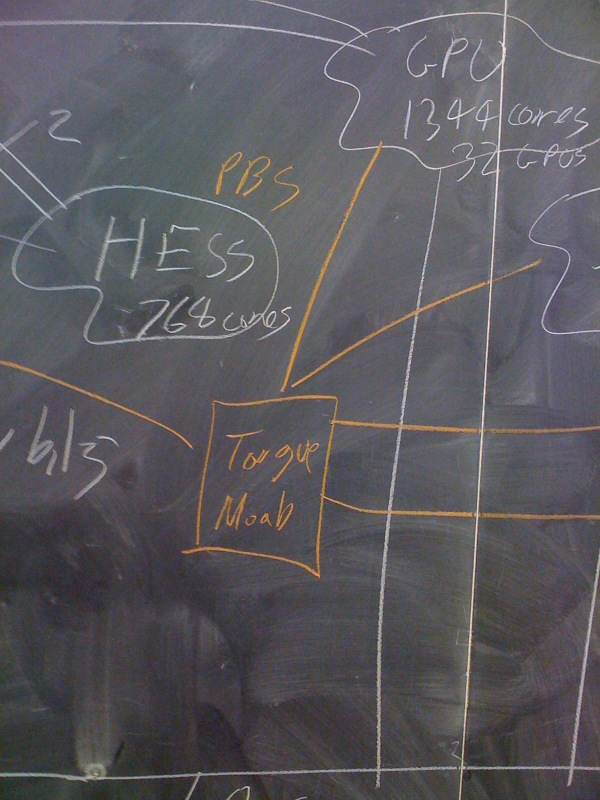 GPU
1344 cores
32 GPUs
2
PBS
HESS
768 cores
Torque
Moab